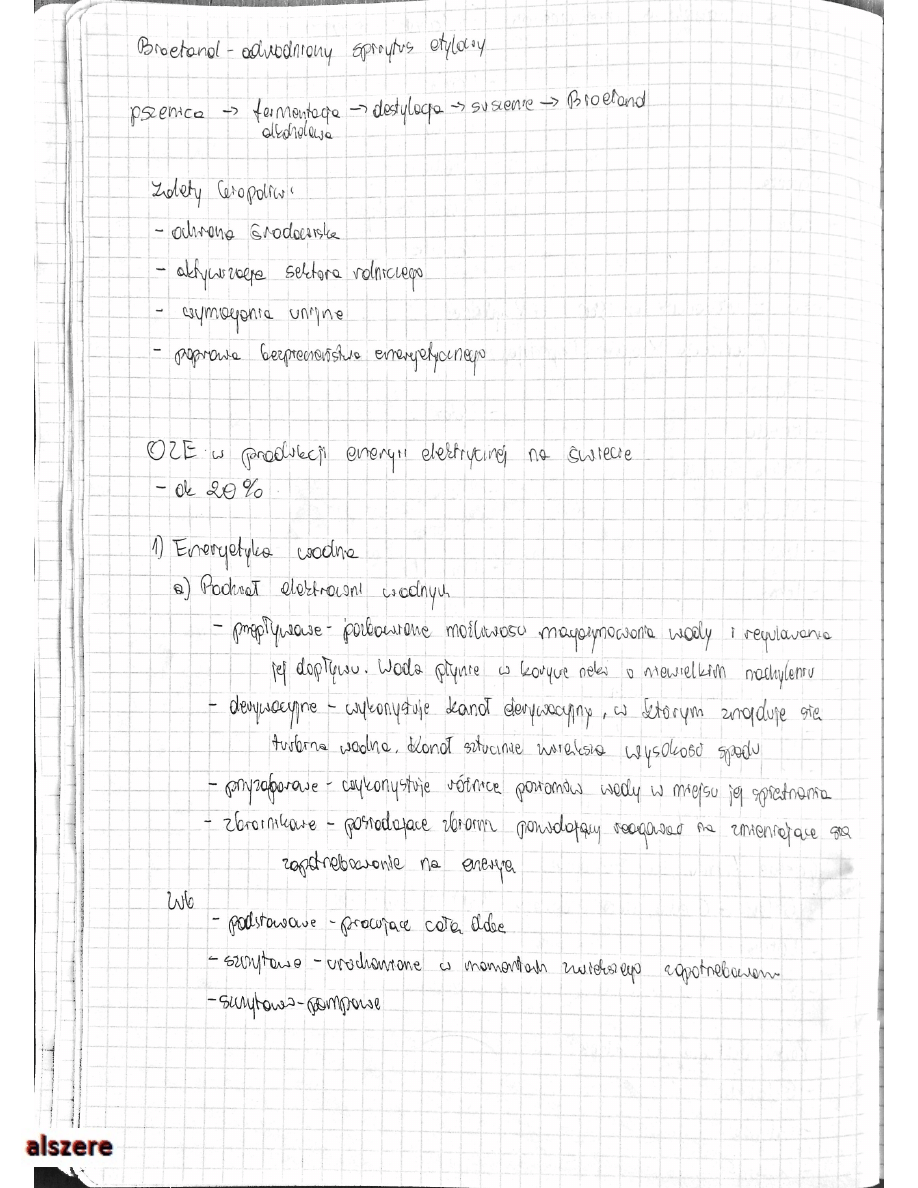 Bioetanol - odwodniony spirytus etylowy
pszenica → fermentacja → destylacja → suszenie → Bioetanol
alkoholowa
Zalety biopaliw:
- ochrona środowiska
- aktywizacja sektora rolniczego
- wymagania unijne
- poprawa bezpieczeństwa energetycznego
OZE w produkcji energii elektrycznej na świecie
- ok 20%
1) Energetyka wodna
a) Podział elektrowni wodnych
- przepływowe - pozbawione możliwości magazynowania wody i regulowania
jej dopływu. Woda płynie w korycie rzeki o niewielkim nachyleniu
- derywacyjne - wykorzystuje kanał derywacyjny, w którym znajduje się
turbina wodna. Kanał sztucznie zwiększa wysokość spadu
- przyzaporowe - wykorzystuje różnice poziomów wody w miejscu jej spiętrzenia
- zbiornikowe - posiadające zbiornik pozwalający reagować na zmieniające się
zapotrzebowanie na energię
- podstawowe - pracujące całą dobę
- szczytowe - uruchamiane w momentach zwiększonego zapotrzebowania
- szczytowo-pompowe
alszere